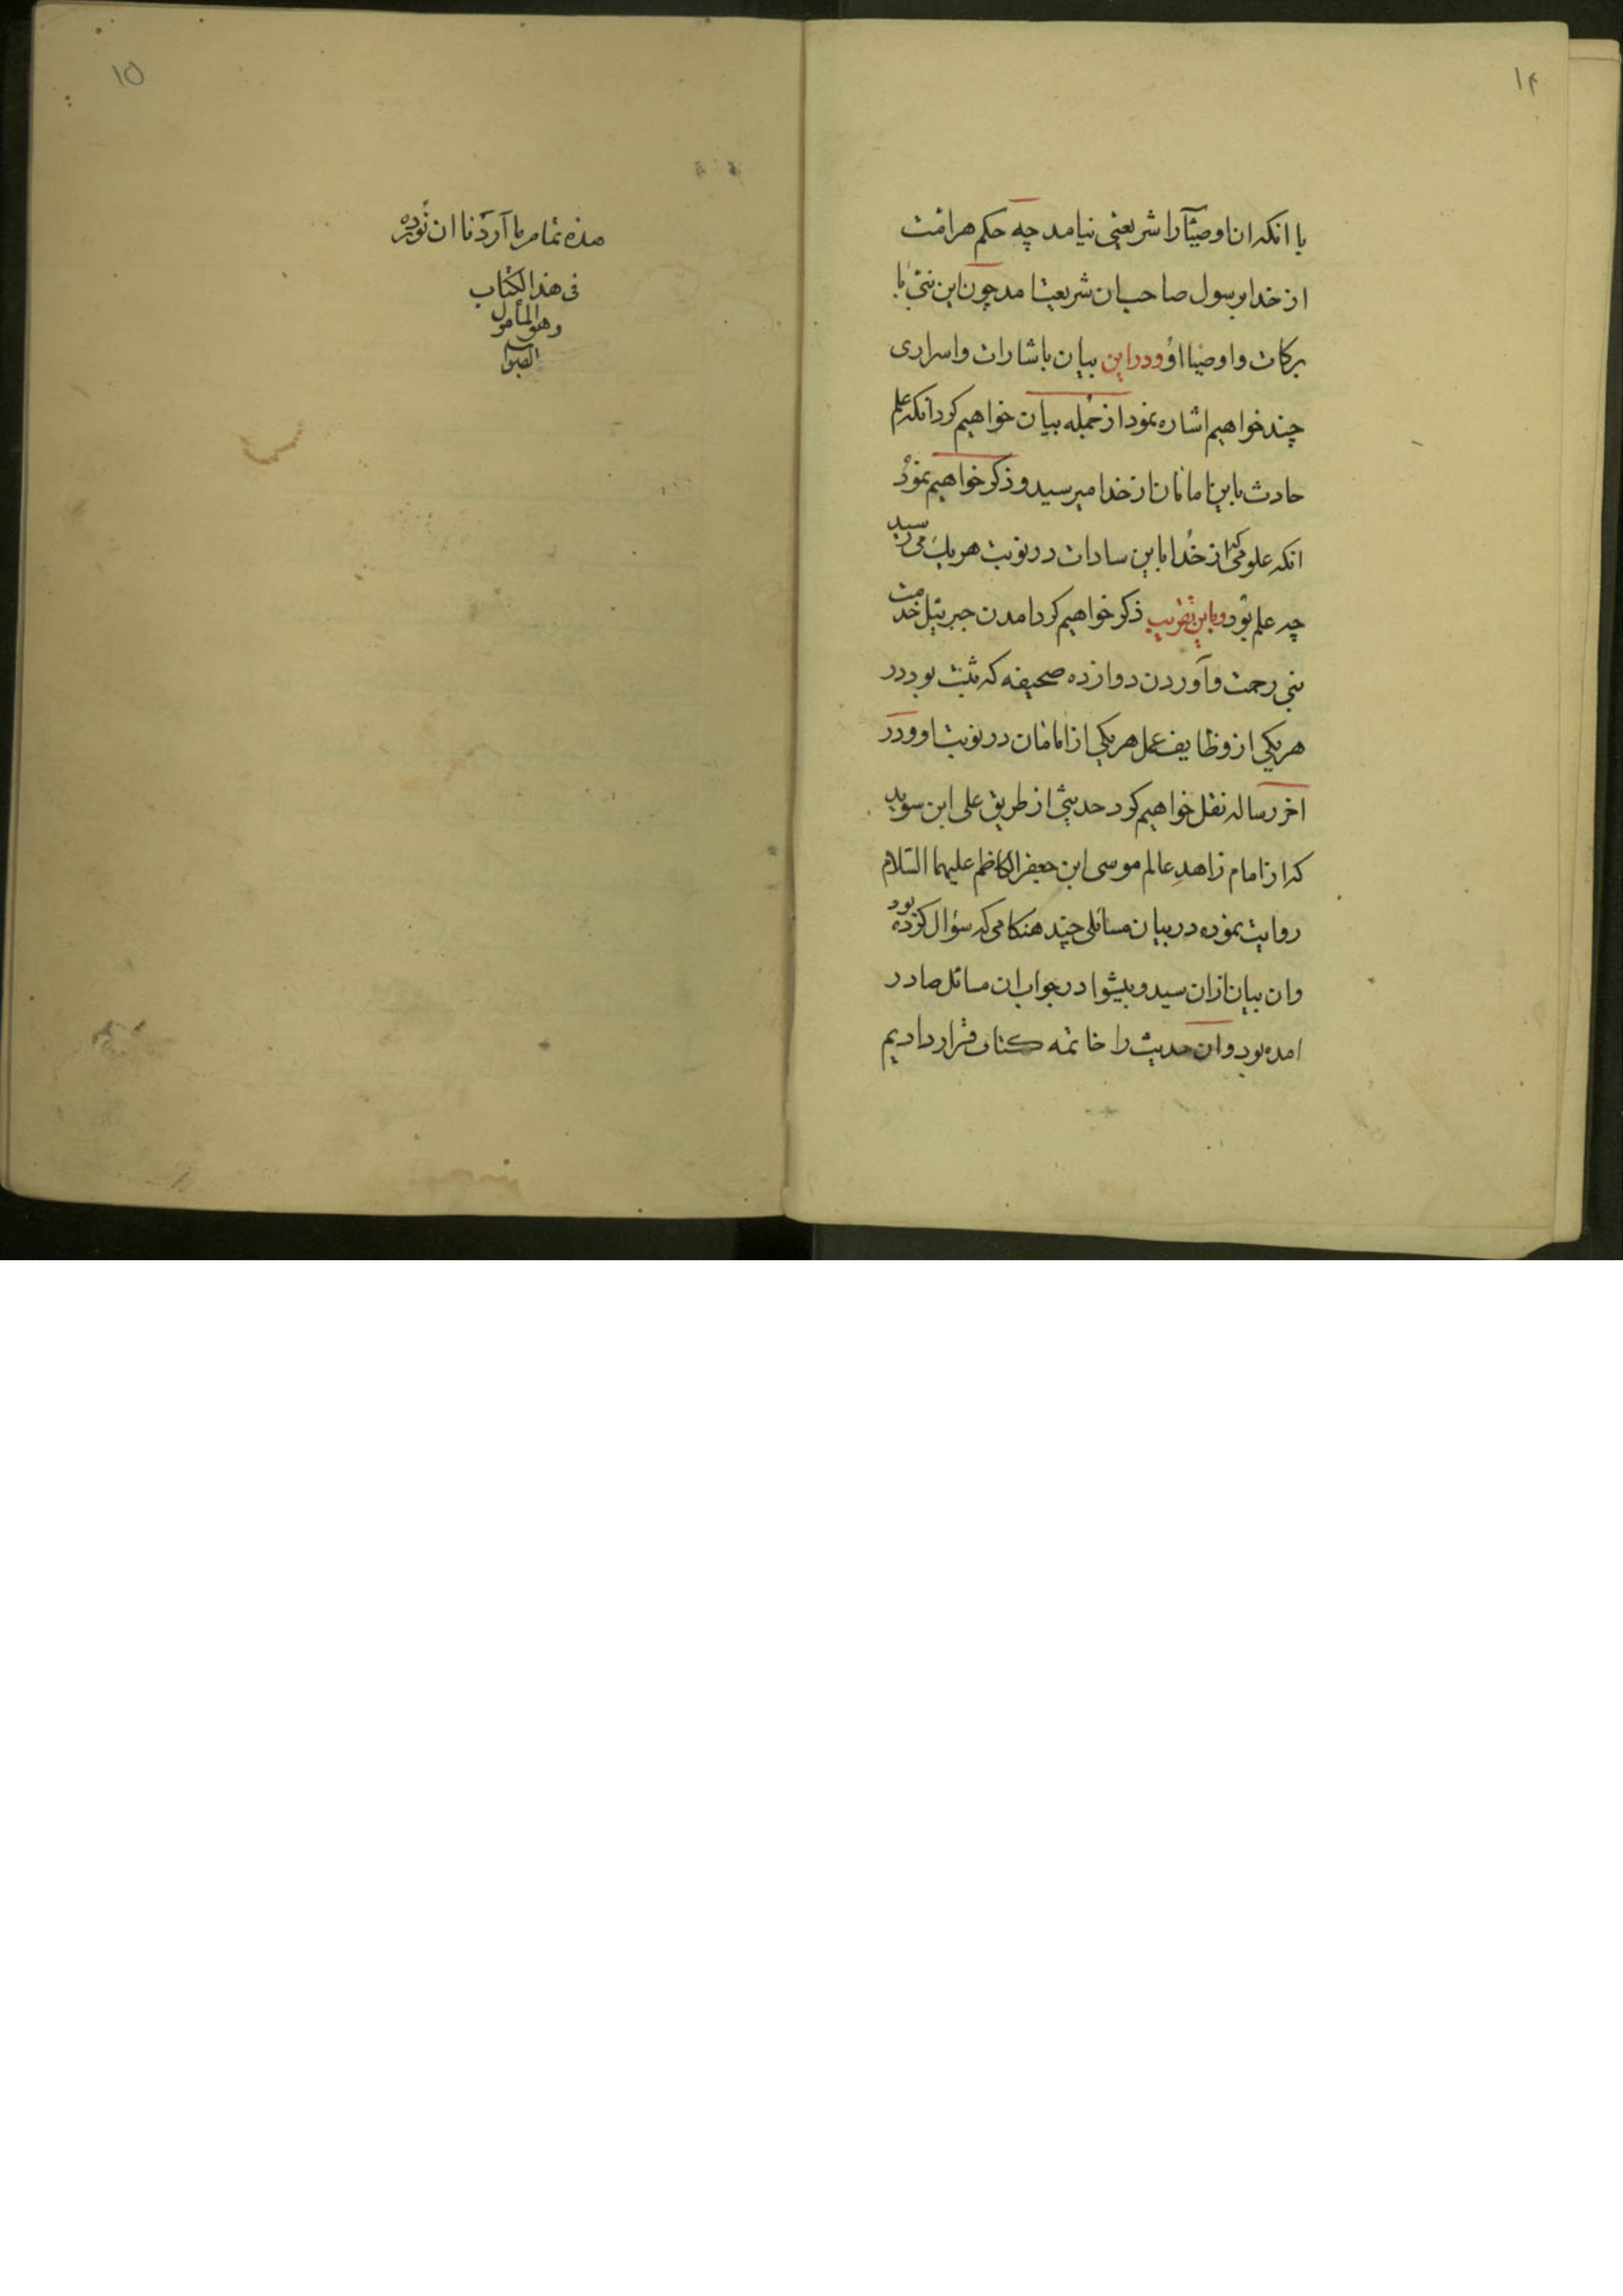 ۱۴
با انکه ان اوصیآ را شریعتی نیامد چه حکم هر امت
از خدا برسول صاحبان شریعت امد چون این نبی با
برکات و اوصیا او و در این بیان باشارات و اسراری
چند خواهیم اشاره نمود از جمله بیان خواهیم کرد انکه علم
حادث باین امامان از خدا میرسید و ذکر خواهیم نمود
انکه علومی که از خدا باین سادات در نوبت هر یک می رسید
چه علم بود و باین تقریب ذکر خواهیم کرد امدن جبرئیل خدمت
نبی رحمت و آوردن دوازده صحیفه که ثبت بود در
هر یکی از وظایف عمل هر یکی از امامان در نوبت او و در
اخر رساله نقل خواهیم کرد حدیثی از طریق علی ابن سوید
که از امام زاهد عالم موسی ابن جعفر الکاظم علیهما السلام
روایت نموده در بیان مسائلی چند هنکامی که سؤال کرده بود
وان بیان ازان سید و پیشوا در جواب ان مسائل صادر
امده بود و ان حدیث را خاتمه کتاب قرار دادیم
۱۵
هذه تمام ما آردنا ان نورده
فی هذا الکتاب
وهو المأمول